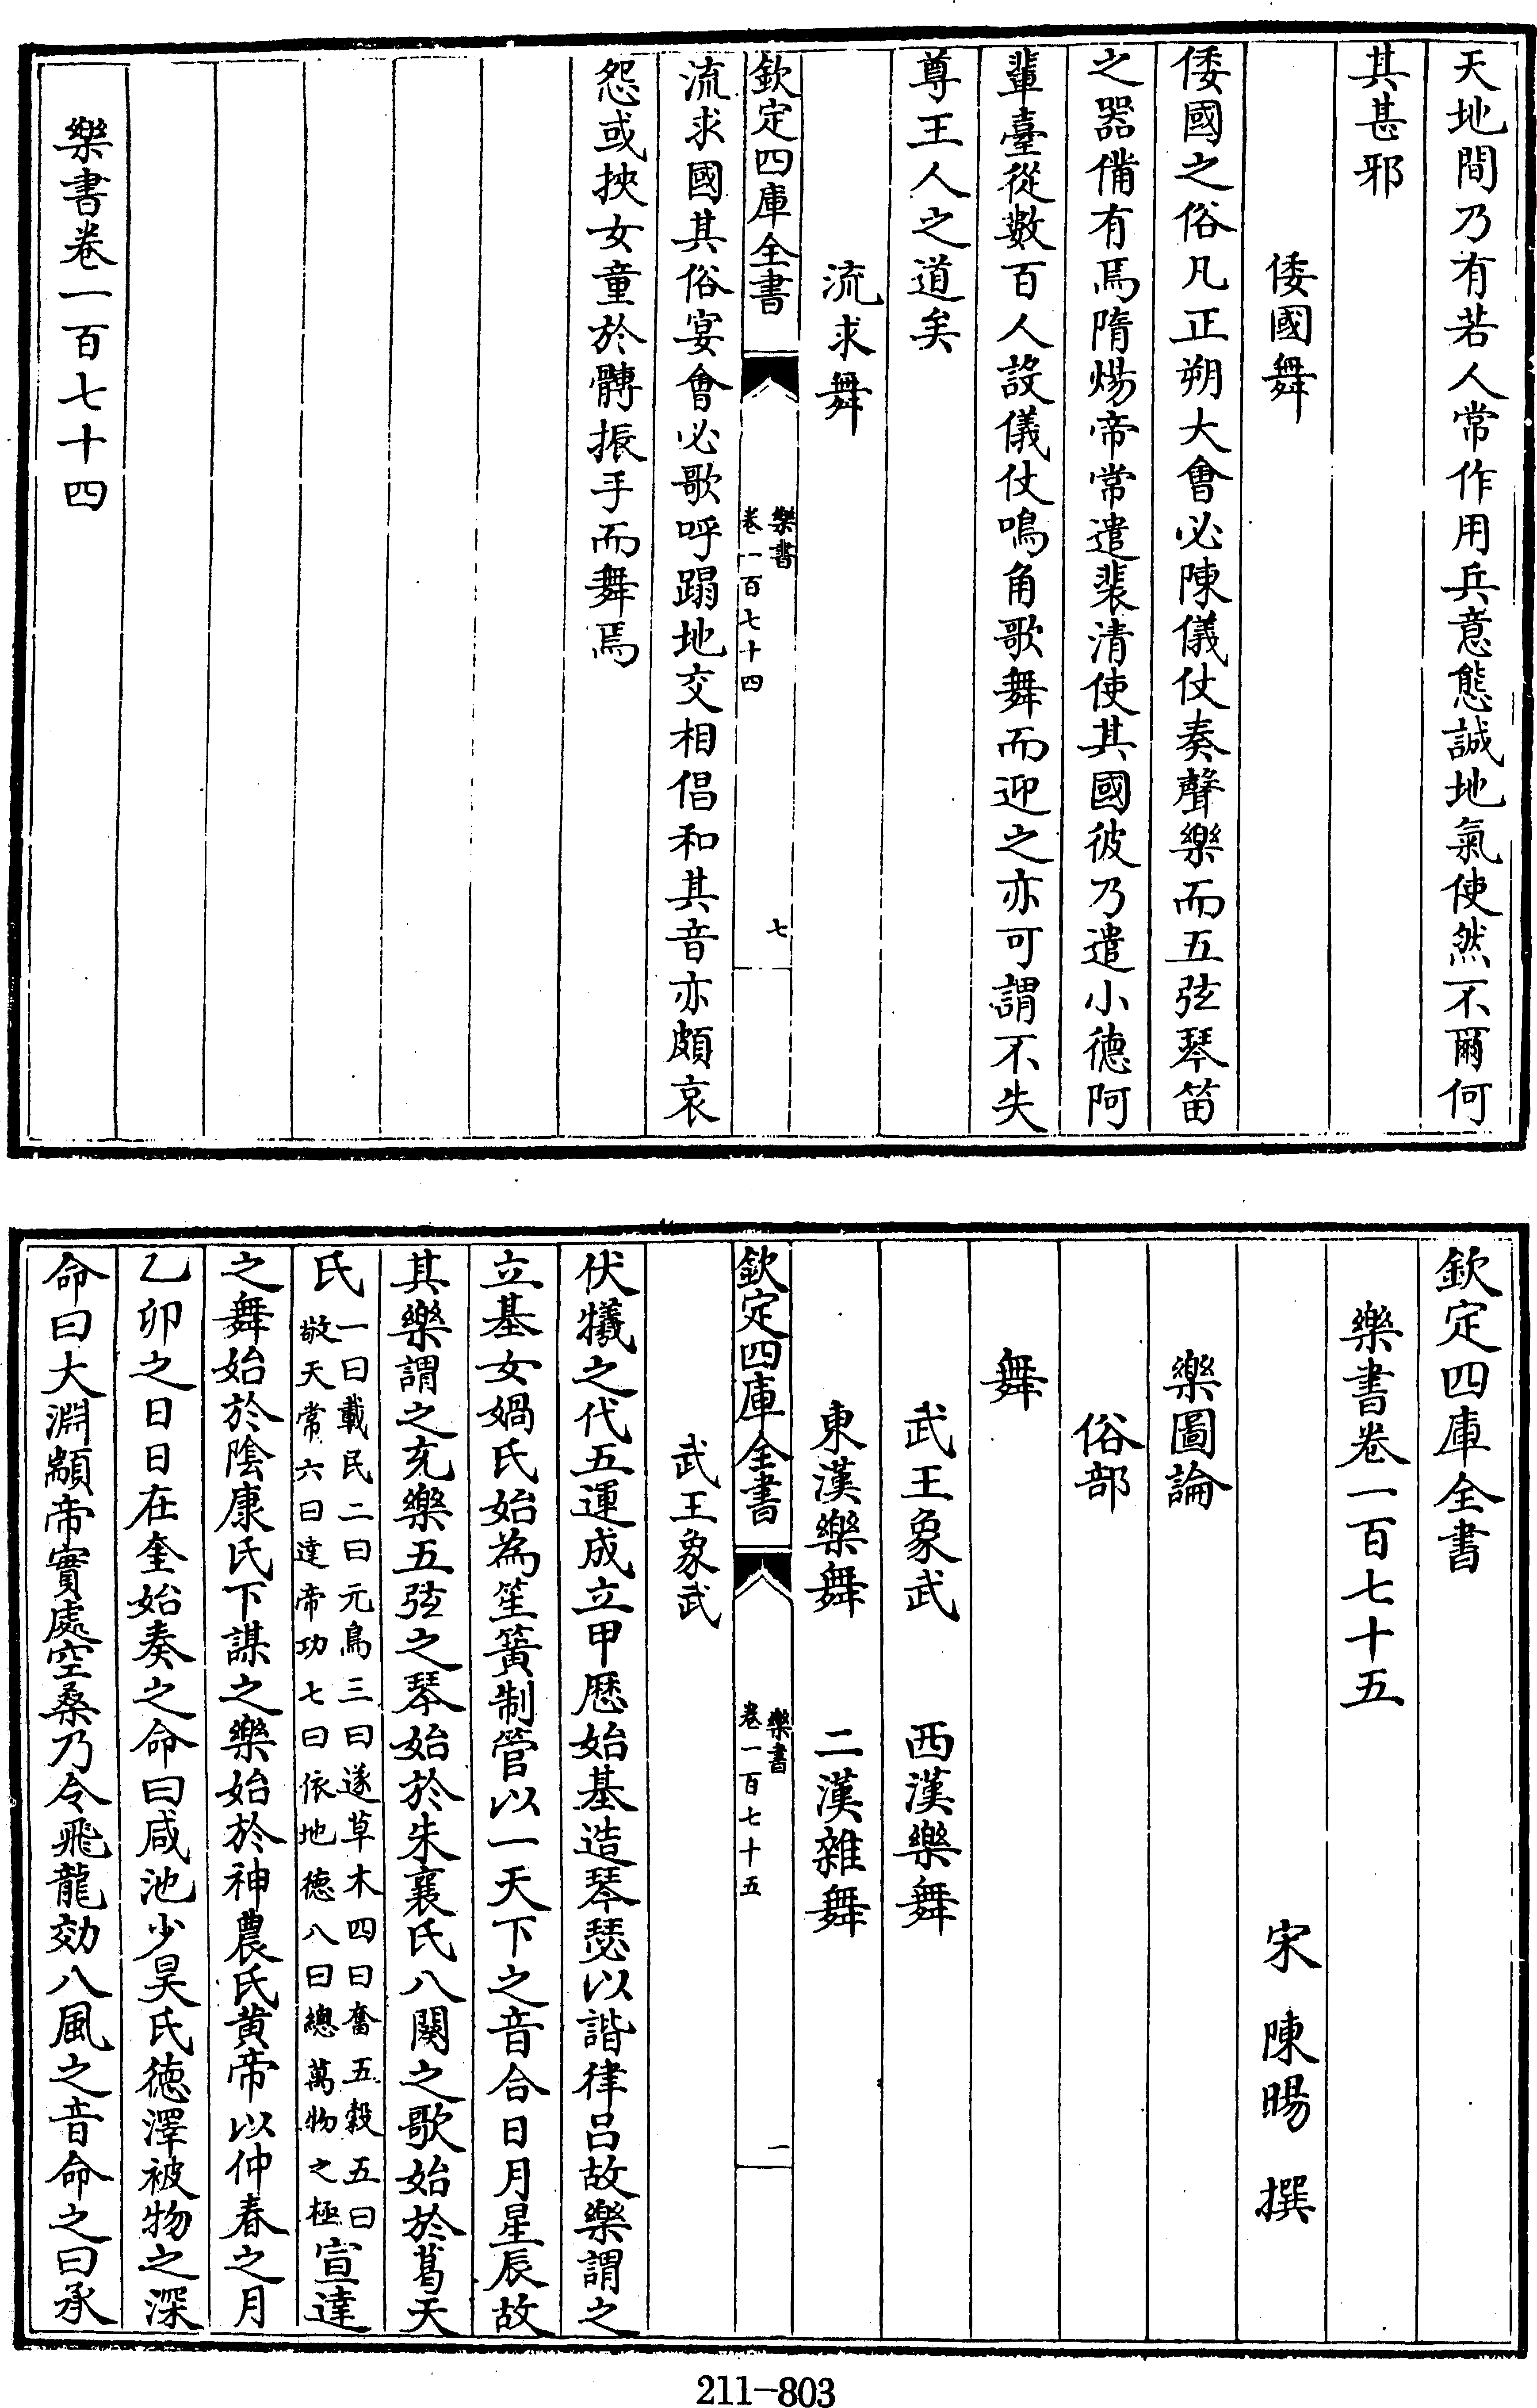 天地間乃有若人常作用兵意態誠地氣使然不爾何
其甚邪
倭國舞
倭國之俗凡正朔大會必陳儀仗奏聲樂而五弦琴笛
之器備有焉隋煬帝常遣裴清使其國彼乃遣小德阿
輩臺從數百人設儀仗鳴角歌舞而迎之亦可謂不失
尊王人之道矣
流求舞
欽定四庫全書
樂書
卷一百七十四
七
流求國其俗宴會必歌呼蹋地交相倡和其音亦頗哀
怨或挾女童於髆振手而舞焉
樂書卷一百七十四
欽定四庫全書
樂書卷一百七十五
宋 陳暘 撰
樂圖論
俗部
舞
武王象武 西漢樂舞
東漢樂舞 二漢雜舞
欽定四庫全書
樂書
卷一百七十五
一
武王象武
伏犧之代五運成立甲厯始基造琴瑟以諧律呂故樂謂之
立基女媧氏始為笙簧制管以一天下之音合日月星辰故
其樂謂之充樂五弦之琴始於朱襄氏八闋之歌始於葛天
氏一曰載民二曰元鳥三曰遂草木四曰奮五穀五曰
敬天常六曰達帝功七曰依地德八曰總萬物之極宣達
之舞始於陰康氏下謀之樂始於神農氏黄帝以仲春之月
乙卯之日日在奎始奏之命曰咸池少昊氏德澤被物之深
命曰大淵顓帝實處空桑乃令飛龍効八風之音命之曰承
211-803